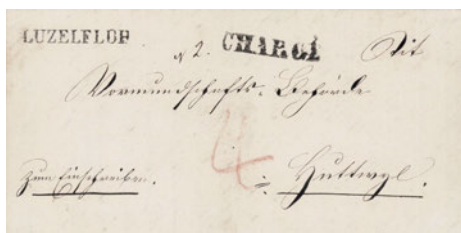 LUZELFLÜH
N 2. CHARGÉ Tit
Vormundschafts-Behörde
4
zum Einschreiben. Huttwyl.